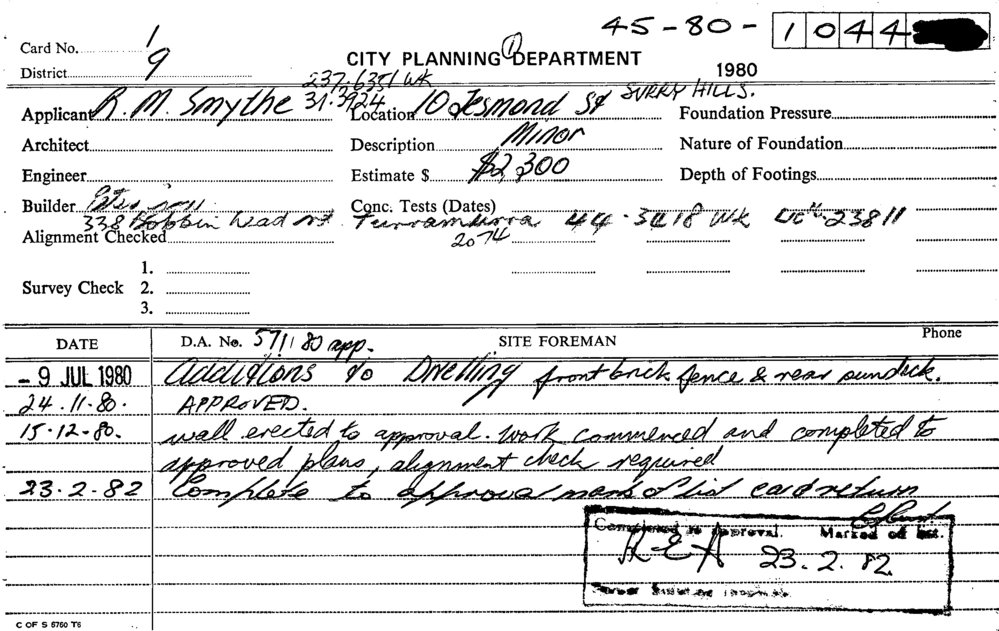 45-80- 1044
Card No. 1
CITY PLANNING DEPARTMENT
1
District 9
1980
237.6351 WK
Applicant R. M. Smythe 31.3924 Location 10 Jesmond St SURRY HILLS. Foundation Pressure
Architect Description Minor Nature of Foundation
Engineer Estimate $ $2,300 Depth of Footings
Builder Conc. Tests (Dates)
338 Bobbin Head Rd. Turramurra 44-3418 WK Lic. 23811
Alignment Checked 2074
1.
Survey Check 2.
3.
DATE D.A. No. 571/80 app. SITE FOREMAN Phone
- 9 JUL 1980 Additions to Dwelling front brick fence & rear sundeck.
24.11.80. APPROVED.
15.12.80. wall erected to approval. work commenced and completed to
approved plans, alignment check required
23.2.82 Complete to approval mark of list card return
Completed to approval. Marked off list.
R-E-A 23.2.82
C OF S 5760 T6